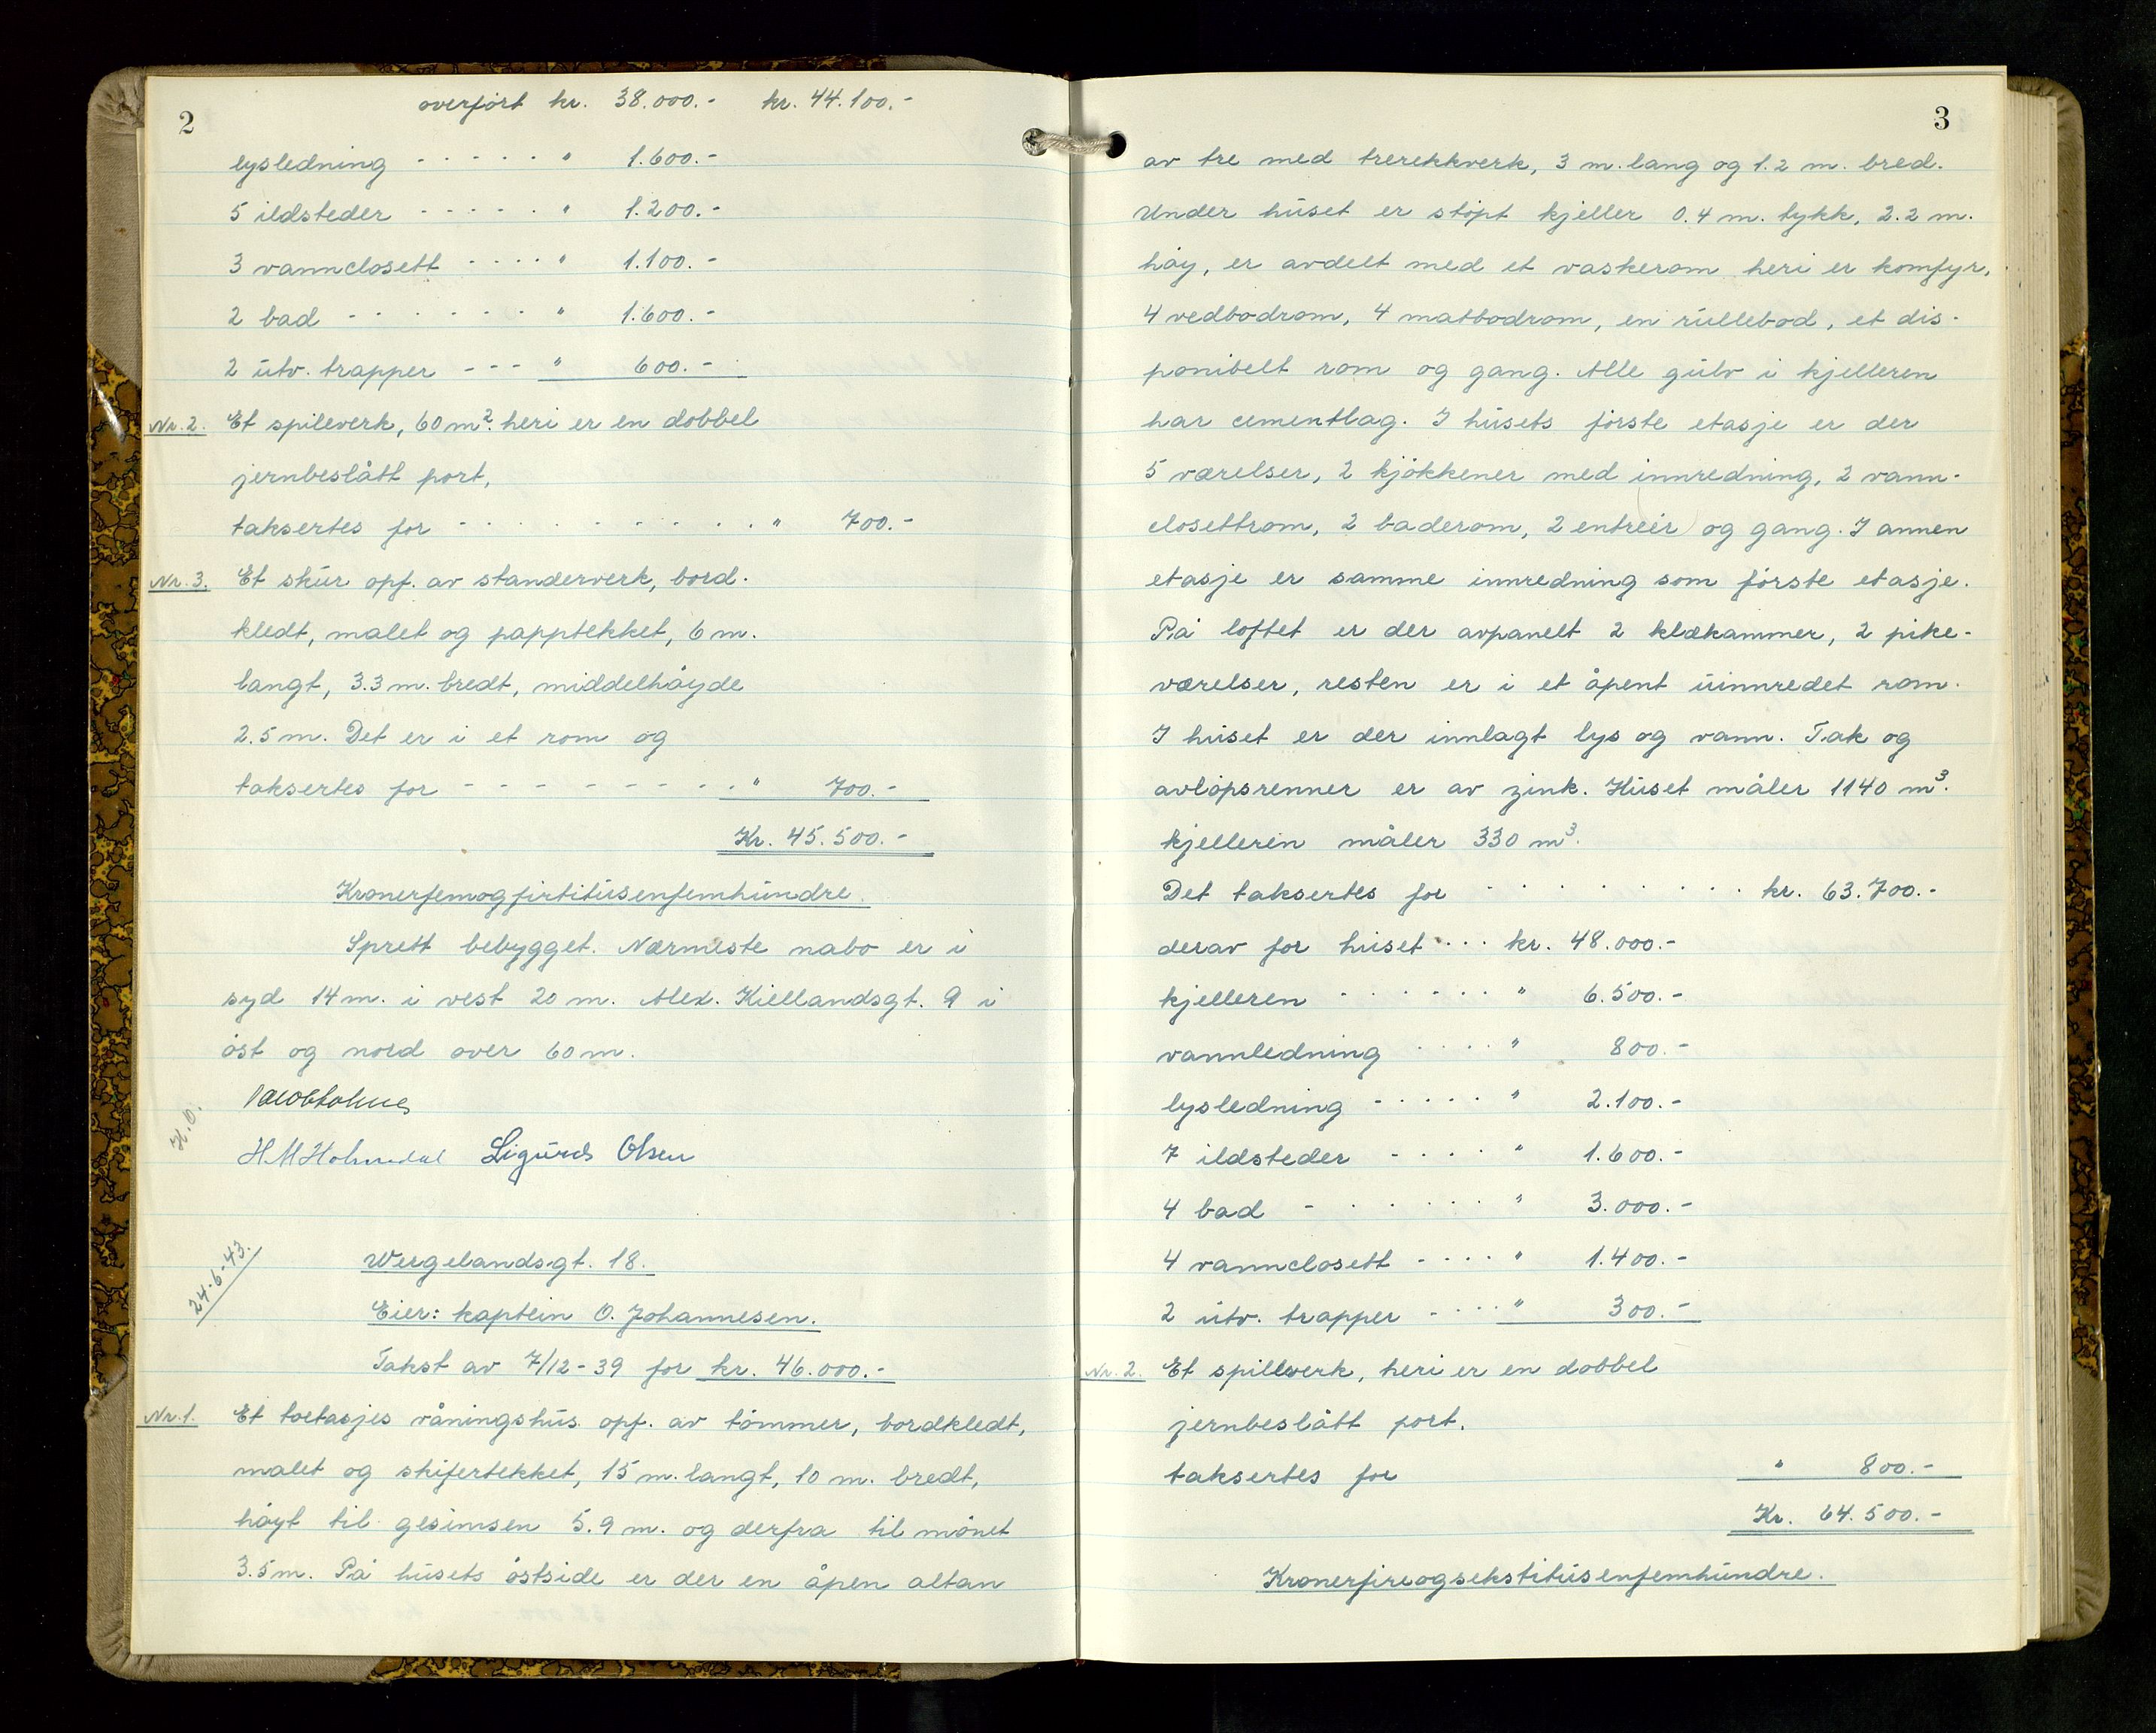 2
overført kr. 38.000.- kr. 44.100.-
lysledning - - - - - " 1.600.-
5 ildsteder - - - - - " 1.200.-
3 vannclosett - - - - " 1.100.-
2 bad - - - - - - - " 1.600.-
2 utv. trapper - - - " 600.-
Nr. 2. Et spileverk, 60 m². heri er en dobbel
jernbeslått port,
taksertes for - - - - - - - - - - - " 700.-
Nr. 3. Et skur opf. av standerverk, bord-
kledt, malet og papptekket, 6 m.
langt, 3.3 m. bredt, middelhøyde
2.5 m. Det er i et rom og
taksertes for - - - - - - - - - " 700.-
Kr. 45.500.-
Kronerfemogfirtitusenfemhundre.
Sprett bebygget. Nærmeste nabo er i
syd 14 m. i vest 20 m. Alex. Kiellandsgt. 9 i
øst og nord over 60 m.
H.O.
H M Holmedal Sigurd Olsen
24-6-43.
Wergelandsgt. 18.
Eier: kaptein O. Johannesen.
Takst av 7/12-39 for kr. 46.000.-
Nr. 1. Et toetasjes våningshus opf. av tømmer, bordkledt,
malet og skifertekket, 15 m. langt, 10 m. bredt,
høyt til gesimsen 5.9 m. og derfra til mønet
3.5 m. På husets østside er der en åpen altan
3
av tre med trerekkverk, 3 m. lang og 1.2 m. bred.
Under huset er støpt kjeller 0.4 m. tykk, 2.2 m.
høy, er avdelt med et vaskerom heri er komfyr,
4 vedbodrom, 4 matbodrom, en rullebod, et dis-
ponibelt rom og gang. Alle gulv i kjelleren
har cementlag. I husets første etasje er der
5 værelser, 2 kjøkkener med innredning, 2 vann-
closettrom, 2 baderom, 2 entreer og gang. I annen
etasje er samme innredning som første etasje.
På loftet er der avpanelt 2 klækammer, 2 pike-
værelser, resten er i et åpent uinnredet rom.
I huset er der innlagt lys og vann. Tak og
avløpsrenner er av zink. Huset måler 1140 m³.
kjelleren måler 330 m³.
Det taksertes for - - - - - - - - - kr. 63.700.-
derav for huset - - - kr. 48.000.-
kjelleren - - - - - - " 6.500.-
vannledning - - - - " 800.-
lysledning - - - - - " 2.100.-
7 ildsteder - - - - " 1.600.-
4 bad - - - - - - " 3.000.-
4 vannclosett - - - - " 1.400.-
2 utv. trapper - - - - " 300.-
Nr. 2. Et spillverk, heri er en dobbel
jernbeslått port.
taksertes for " 800.-
Kr. 64.500.-
Kronerfireogsekstitusenfemhundre.